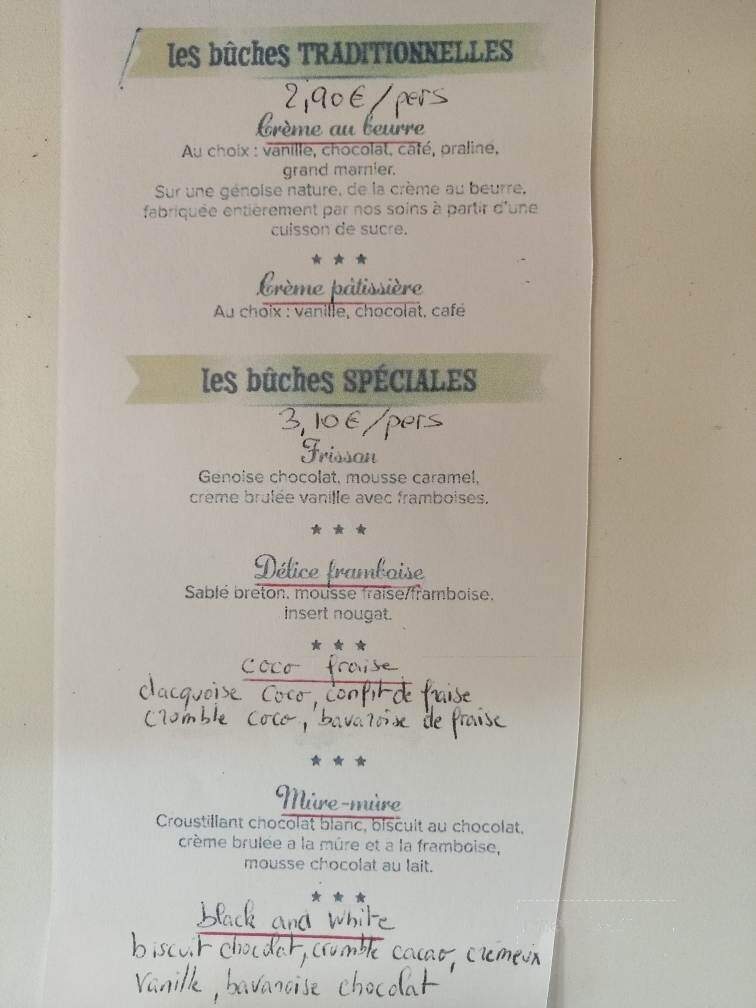 les bûches TRADITIONNELLES
2,90€/pers
Crème au beurre
Au choix : vanille, chocolat, café, praliné,
grand marnier.
Sur une génoise nature, de la crème au beurre,
fabriquée entièrement par nos soins à partir d'une
cuisson de sucre.
Crème pâtissière
Au choix : vanille, chocolat, café
les bûches SPÉCIALES
3,10€/pers
Frisson
Genoise chocolat, mousse caramel,
crème brulée vanille avec framboises.
Délice framboise
Sablé breton, mousse fraise/framboise,
insert nougat.
coco fraise
dacquoise coco, confit de fraise
crumble coco, bavaroise de fraise
Mûre-mûre
Croustillant chocolat blanc, biscuit au chocolat,
crème brulée a la mûre et a la framboise,
mousse chocolat au lait.
black and white
biscuit chocolat, crumble cacao, crémeux
vanille, bavaroise chocolat